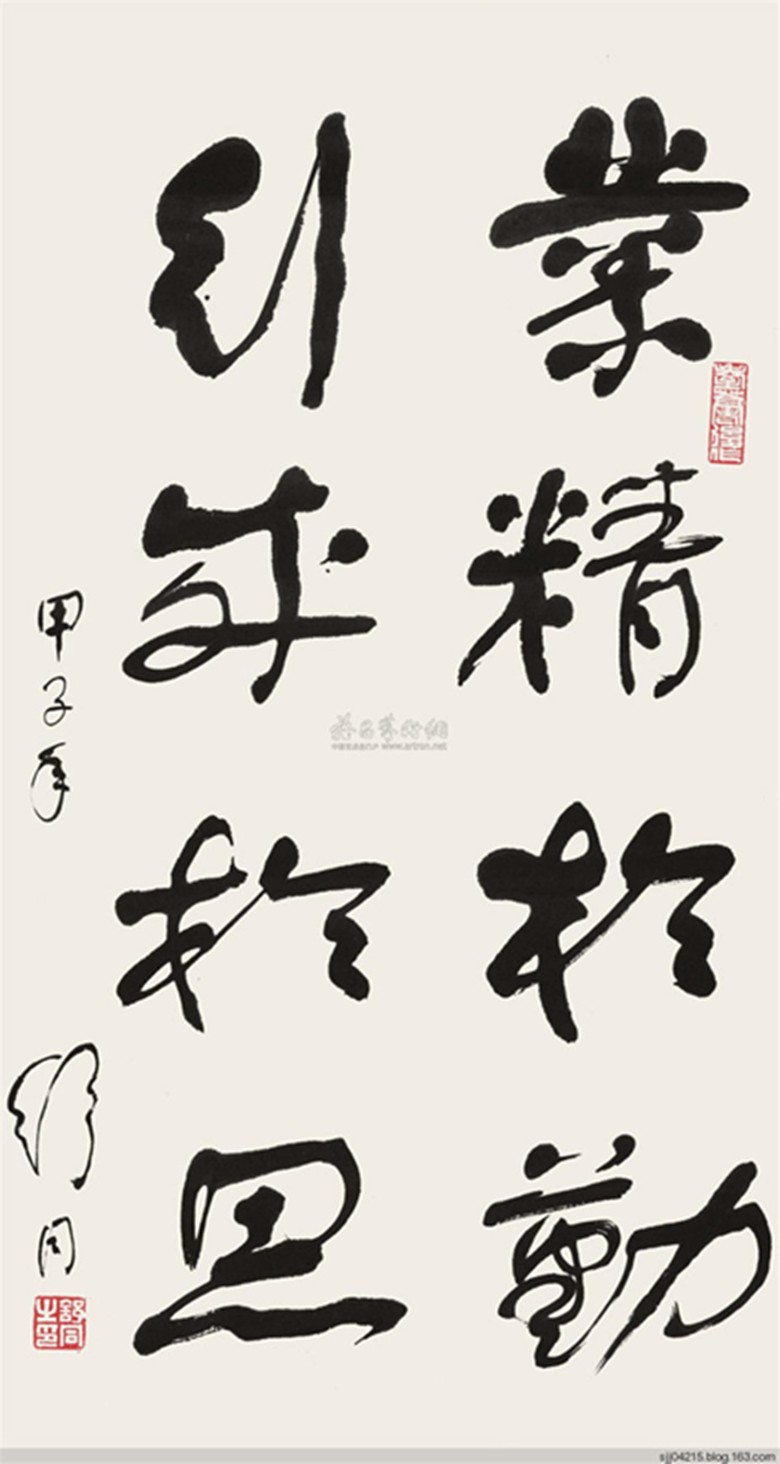 業精於勤
行成於思
甲子年
舒同
舒同之印
雅昌藝術網
www.artron.net
sjj04215.blog.163.com